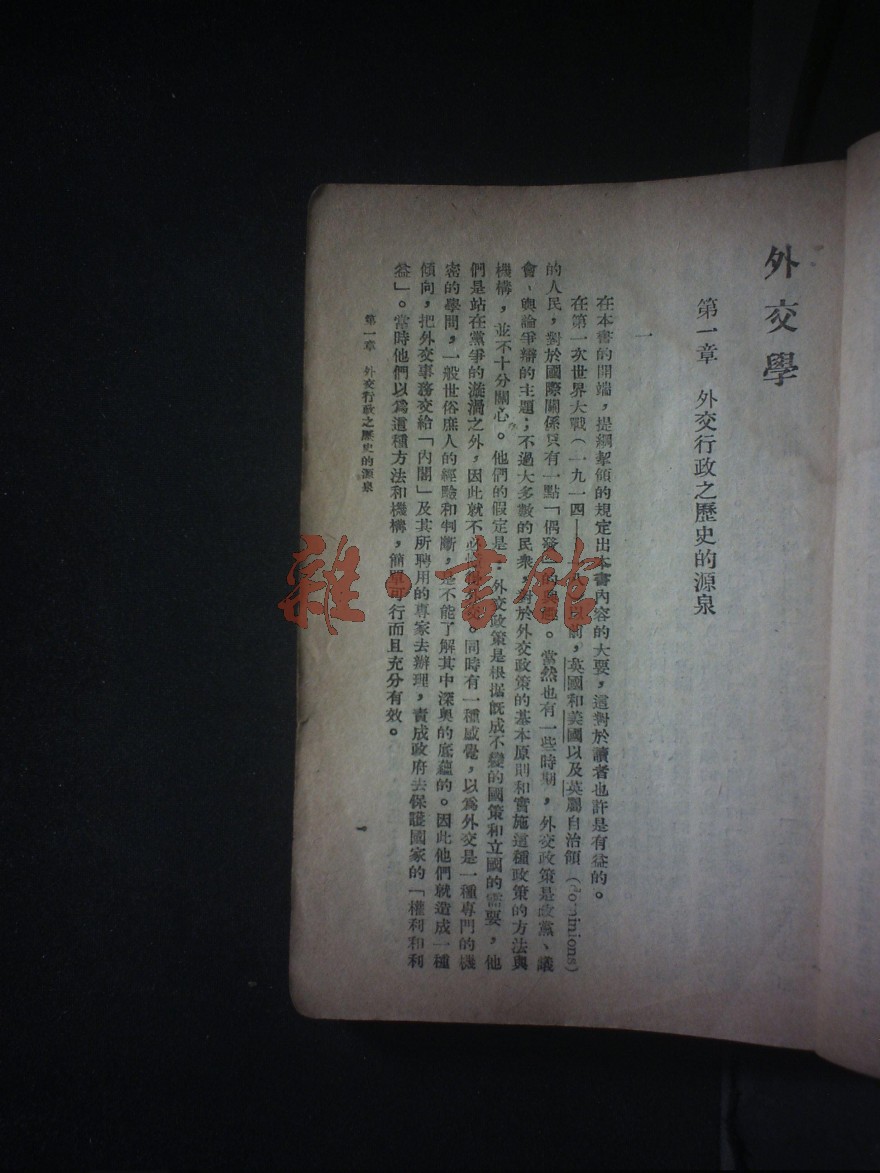 外交學
第一章　外交行政之歷史的源泉
一
在本書的開端，提綱挈領的規定出本書內容的大要，這對於讀者也許是有益的。
在第一次世界大戰（一九一四——一八）以前，英國和美國以及英屬自治領（dominions）
的人民，對於國際關係只有一點「偶發」的興趣。當然也有一些時期，外交政策是政黨、議
會、輿論爭辯的主題；不過大多數的民衆，對於外交政策的基本原則和實施這種政策的方法與
機構，並不十分關心。他們的假定是：外交政策是根据旣成不變的國策和立國的需要，他
們是站在黨爭的漩渦之外，因此就不必。同時有一種感覺，以爲外交是一種專門的機
密的學問，一般世俗庶人的經驗和判斷，是不能了解其中深奧的底蘊的。因此他們就造成一種
傾向，把外交事務交給「內閣」及其所聘用的專家去辦理，責成政府去保護國家的「權利和利
益」。當時他們以爲這種方法和機構，簡單可行而且充分有效。
第一章　外交行政之歷史的源泉
一
雜·書館